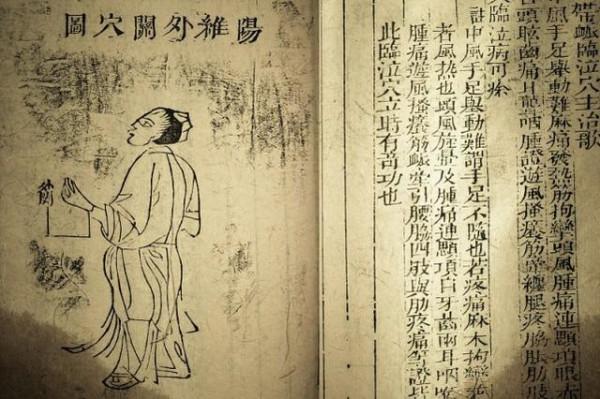 帶䘑臨泣穴主治歌
中風手足舉動難麻痛發熱筋拘攣頭風腫痛連顋項眼赤
頭眩齒痛耳聾咽腫證遊風搔癢筋牽纏腿疼脇脹肋肢
臨泣病可痊
註中風手足舉動難謂手足不隨也若疼痛麻木拘攣
者風熱也頭風旋暈及腫痛連顋項目牙齒兩耳咽喉
腫痛遊風搔癢筋䘑牽引腰脇四肢與肋疼痛等證皆
此臨泣穴立時有奇功也
陽維外關穴圖